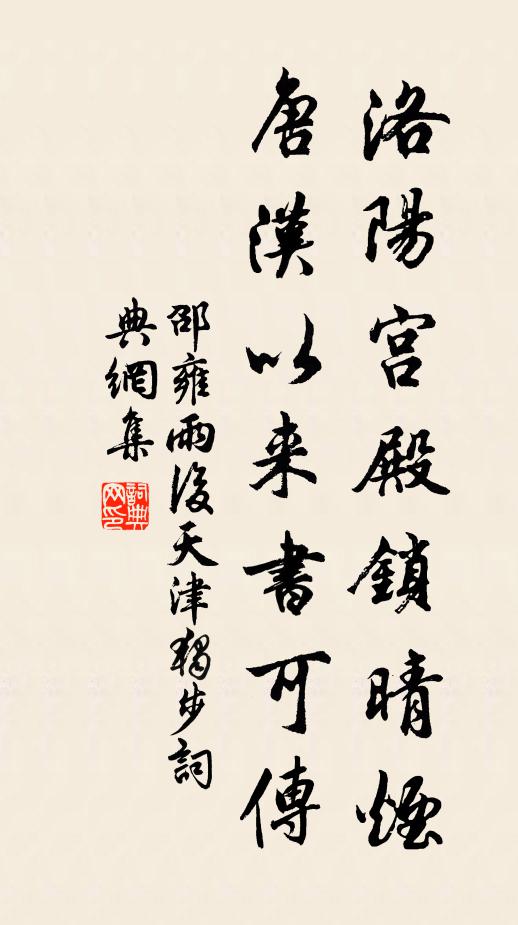 洛陽宫殿鎖晴煙
唐漢以来書可傳
邵雍雨後天津獨步詞
典網集
詞典
网印